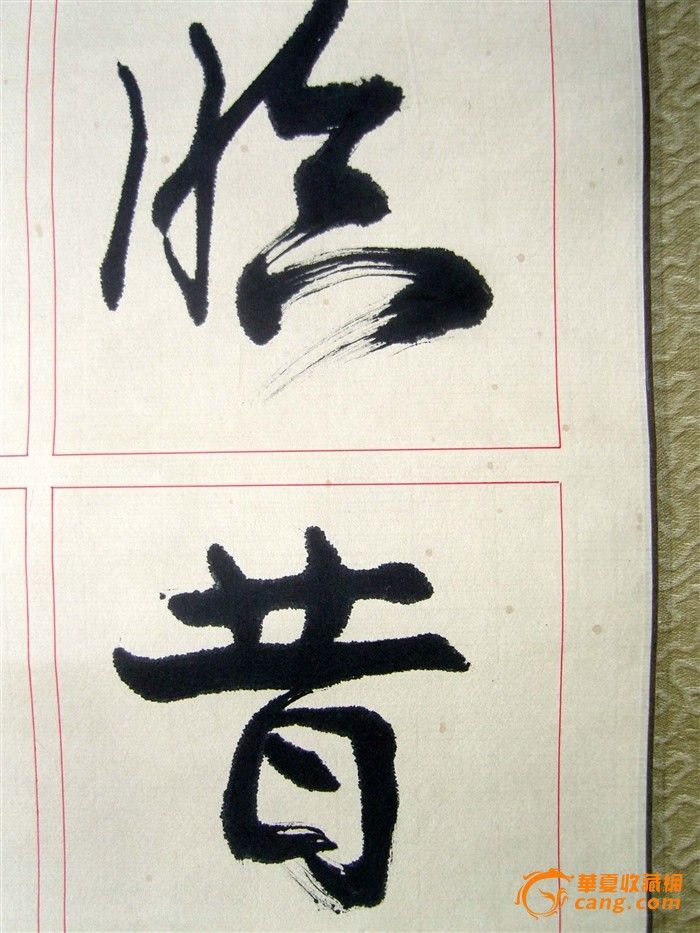 憶
昔
華夏收藏網
cang.com